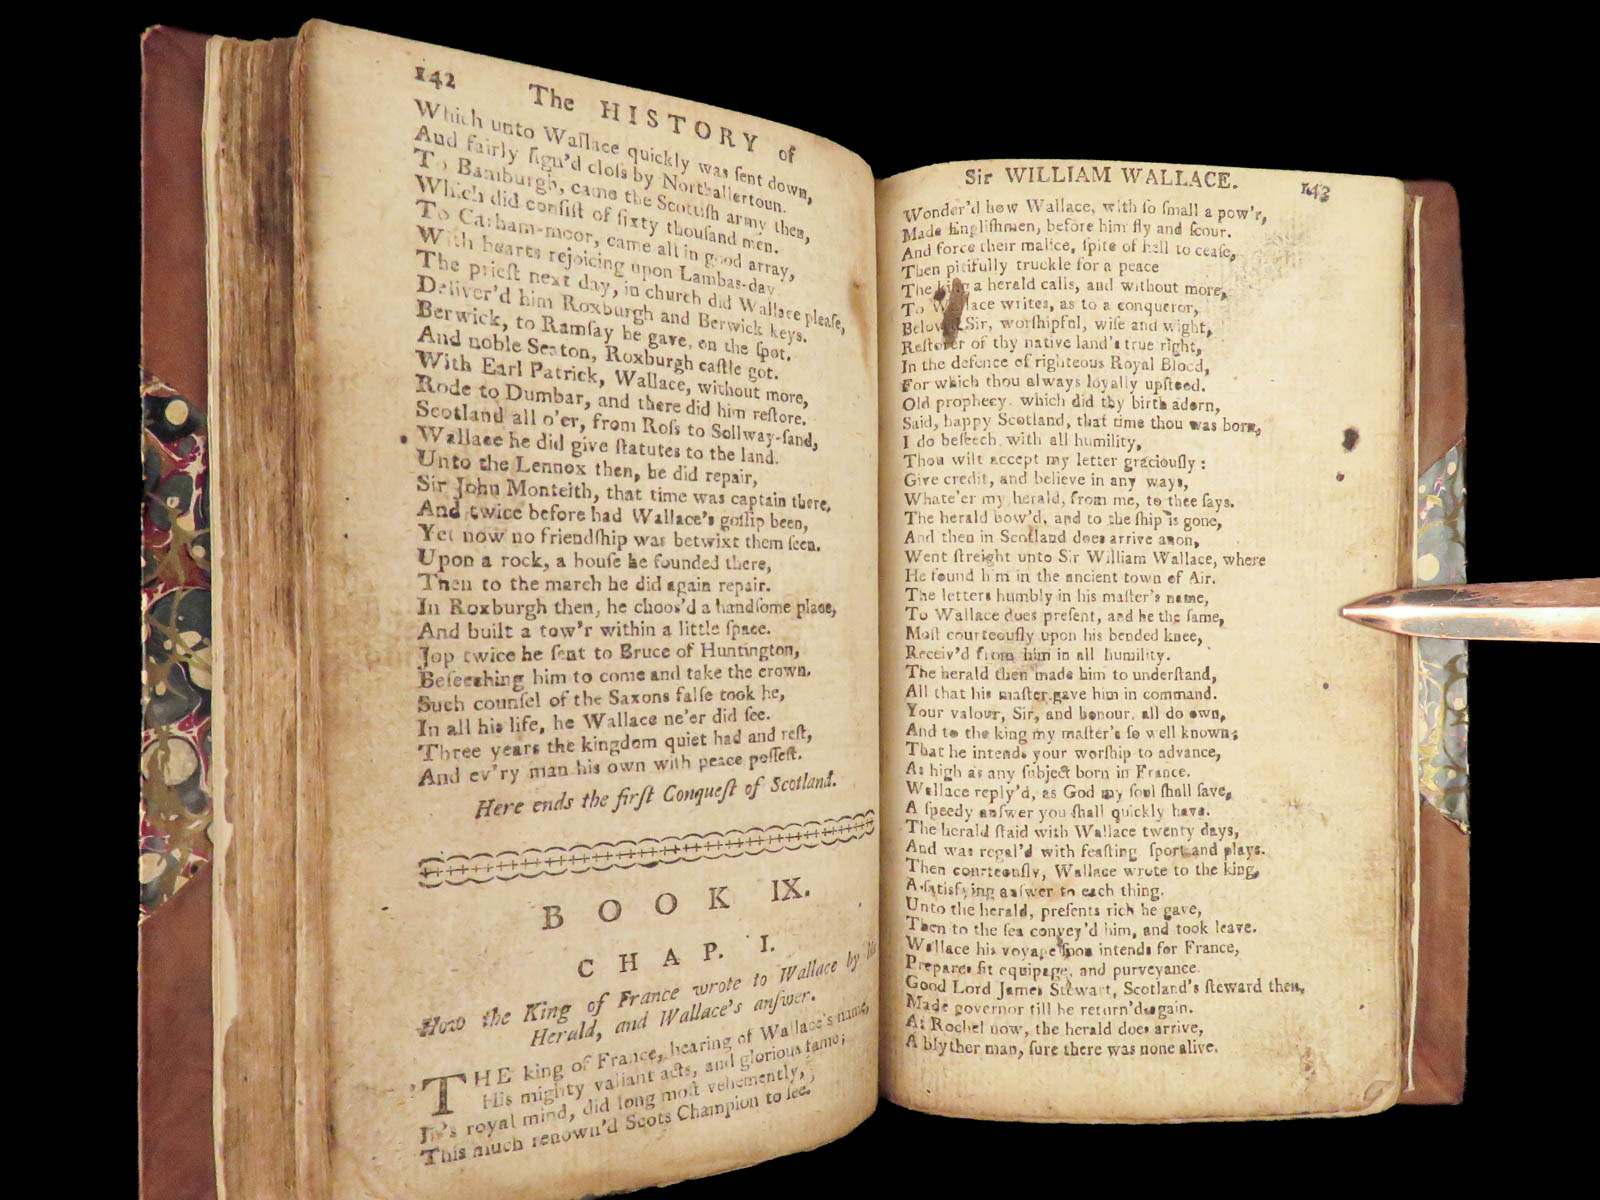 142
The HISTORY of
Which unto Wallace quickly was ſent down,
And fairly ſign'd cloſs by Northallertoun.
To Bamburgh, came the Scottiſh army then,
Which did conſiſt of ſixty thouſand men.
To Carham-moor, came all in good array,
With hearts rejoicing upon Lambas-day.
The prieſt next day, in church did Wallace pleaſe,
Deliver'd him Roxburgh and Berwick keys.
Berwick, to Ramſay he gave, on the ſpot,
And noble Seaton, Roxburgh caſtle got.
With Earl Patrick, Wallace, without more,
Rode to Dumbar, and there did him reſtore.
Scotland all o'er, from Roſs to Sollway-ſand,
Wallace he did give ſtatutes to the land.
Unto the Lennox then, he did repair,
Sir John Monteith, that time was captain there,
And twice before had Wallace's goſſip been,
Yet now no friendſhip was betwixt them ſeen.
Upon a rock, a houſe he founded there,
Then to the march he did again repair.
In Roxburgh then, he choos'd a handſome place,
And built a tow'r within a little ſpace.
Jop twice he ſent to Bruce of Huntington,
Beſeeching him to come and take the crown.
Such counſel of the Saxons falſe took he,
In all his life, he Wallace ne'er did ſee.
Three years the kingdom quiet had and reſt,
And ev'ry man his own with peace poſſeſt.
Here ends the firſt Conqueſt of Scotland.
BOOK IX.
CHAP. I.
How the King of France wrote to Wallace by his
Herald, and Wallace's anſwer.
THE king of France, hearing of Wallace's name,
His mighty valiant acts, and glorious fame;
In's royal mind, did long moſt vehemently,
This much renown'd Scots Champion to ſee.
Sir WILLIAM WALLACE.
143
Wonder'd how Wallace, with ſo ſmall a pow'r,
Made Engliſhmen, before him fly and ſcour.
And force their malice, ſpite of hell to ceaſe,
Then pitifully truckle for a peace
The king a herald calls, and without more,
To Wallace writes, as to a conqueror,
Beloved Sir, worſhipful, wiſe and wight,
Reſtorer of thy native land's true right,
In the defence of righteous Royal Blood,
For which thou always loyally upſtood.
Old prophecy, which did thy birth adorn,
Said, happy Scotland, that time thou was born,
I do beſeech with all humility,
Thou wilt accept my letter graciouſly :
Give credit, and believe in any ways,
Whate'er my herald, from me, to thee ſays.
The herald bow'd, and to the ſhip is gone,
And then in Scotland does arrive anon,
Went ſtreight unto Sir William Wallace, where
He found him in the ancient town of Air.
The letters humbly in his maſter's name,
To Wallace does preſent, and he the ſame,
Moſt courteouſly upon his bended knee,
Receiv'd from him in all humility.
The herald then made him to underſtand,
All that his maſter gave him in command.
Your valour, Sir, and honour, all do own,
And to the king my maſter's ſo well known;
That he intends your worſhip to advance,
As high as any ſubject born in France.
Wallace reply'd, as God my ſoul ſhall ſave,
A ſpeedy anſwer you ſhall quickly have.
The herald ſtaid with Wallace twenty days,
And was regal'd with feaſting ſport and plays.
Then courteouſly, Wallace wrote to the king,
A ſatisfying anſwer to each thing.
Unto the herald, preſents rich he gave,
Then to the ſea convey'd him, and took leave.
Wallace his voyage ſoon intends for France,
Prepares fit equipage, and purveyance.
Good Lord James Stewart, Scotland's ſteward then,
Made governor till he return'd again.
At Rochel now, the herald does arrive,
A blyther man, ſure there was none alive.